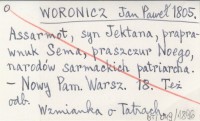 WORONICZ Jan Paweł 1805.
Assarmot, syn Jektana, prapra-
wnuk Sema, praszczur Noego,
narodów sarmackich patriarcha.
- Nowy Pam. Warsz. 18. Też
odb.
Wzmianka o Tatrach.